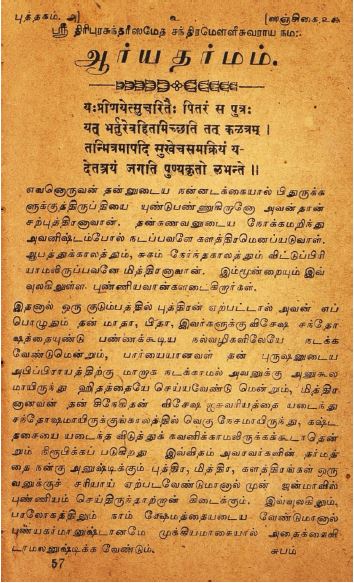 புத்தகம். அ] உ [ஸஞ்சிகை. உக
ஸ்ரீ திரிபுரசுந்தரீஸமேத சந்திரமௌளீசுவராய நம:.
ஆர்யதர்மம்.
यःप्रीणयेत्सुचरितैः पितरं स पुत्रः
यत् भर्तुरेवहितमिच्छति तत् कळत्रम् ।
तन्मित्रमापदि सुखेचसमक्रियं य-
देतत्रयं जगति पुण्यकृतो लभन्ते ।।
எவனொருவன் தன்னுடைய நன்னடக்கையால் பிதுருக்க
ளுக்குத்திருப்தியை யுண்டுபண்ணுகிறானோ அவன்தான்
சற்புத்திரனாவான். தன்கணவனுடைய நோக்கமறிந்து
அவனிஷ்டம்போல் நடப்பவளே களத்திரமெனப்படுவாள்.
ஆபத்துக்காலத்தும், சுகம் நேர்ந்தகாலத்தும் விட்டுப்பிரி
யாமலிருப்பவனே மித்திரனாவான். இம்மூன்றையும் இவ்
வுலகிலுள்ள புண்ணியவான்களடைகிறார்கள்.
இதனால் ஒரு குடும்பத்தில் புத்திரன் ஏற்பட்டால் அவன் எப்
பொழுதும் தன் மாதா, பிதா, இவர்களுக்குவிசேஷ சந்தோ
ஷத்தையுண்டு பண்ணக்கூடிய நல்வழிகளிலேயே நடக்க
வேண்டுமென்றும், பார்யையானவள் தன் புருஷனுடைய
அபிப்பிராயத்திற்கு மாறாக நடக்காமல் அவனுக்கு அநுகூல
மாயிருந்து ஹிதத்தையே செய்யவேண்டு மென்றும், மித்திர
னானவன் தன் சிநேகிதன் விசேஷ ஐசுவரியத்தை யடைந்து
சந்தோஷமாயிருக்குங்காலத்தில் வெகு நேசமாயிருந்து, கஷ்ட
தசையை யடைந்த விடுத்துக் கவனிக்காமலிருக்கக்கூடாதென்
றும் நிரூபிக்கப் படுகிறது இவ்விதம் அவரவர்களின் தர்மத்
தை நன்கு அனுஷ்டிக்கும் புத்திர, மித்திர, களத்திரங்கள் ஒரு
வனுக்குச் சரியாய் ஏற்படவேண்டுமானால் முன் ஜன்மாவில்
புண்ணியம் செய்திருந்தாற்றான் கிடைக்கும். இவ்வுலகிலும்,
பரலோகத்திலும் நாம் க்ஷேமத்தையடைய வேண்டுமானால்
புண்யகர்மானுஷ்டானமே முக்கியமாகையால் அதைக்கைவி
டாமலனுஷ்டிக்க வேண்டும். சுபம்
57